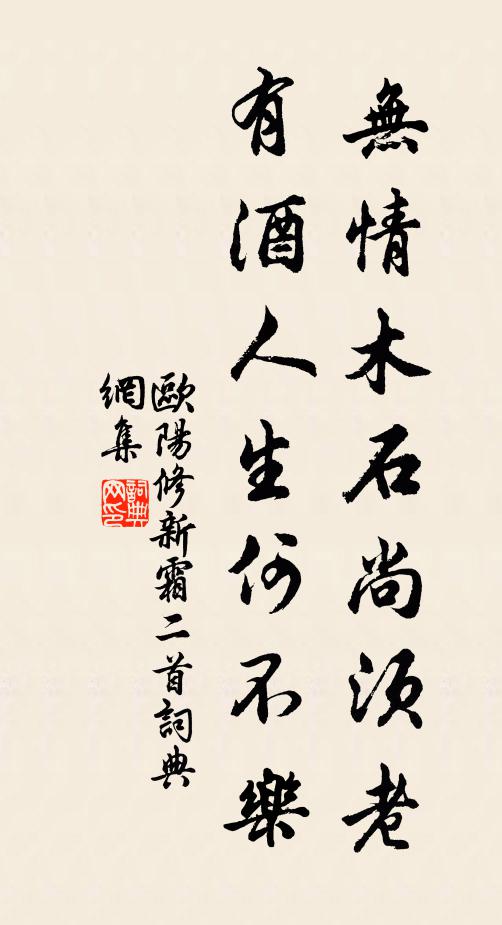 無情木石尚須老
有酒人生何不樂
歐陽修新霜二首詞典
網集
詞典
网印